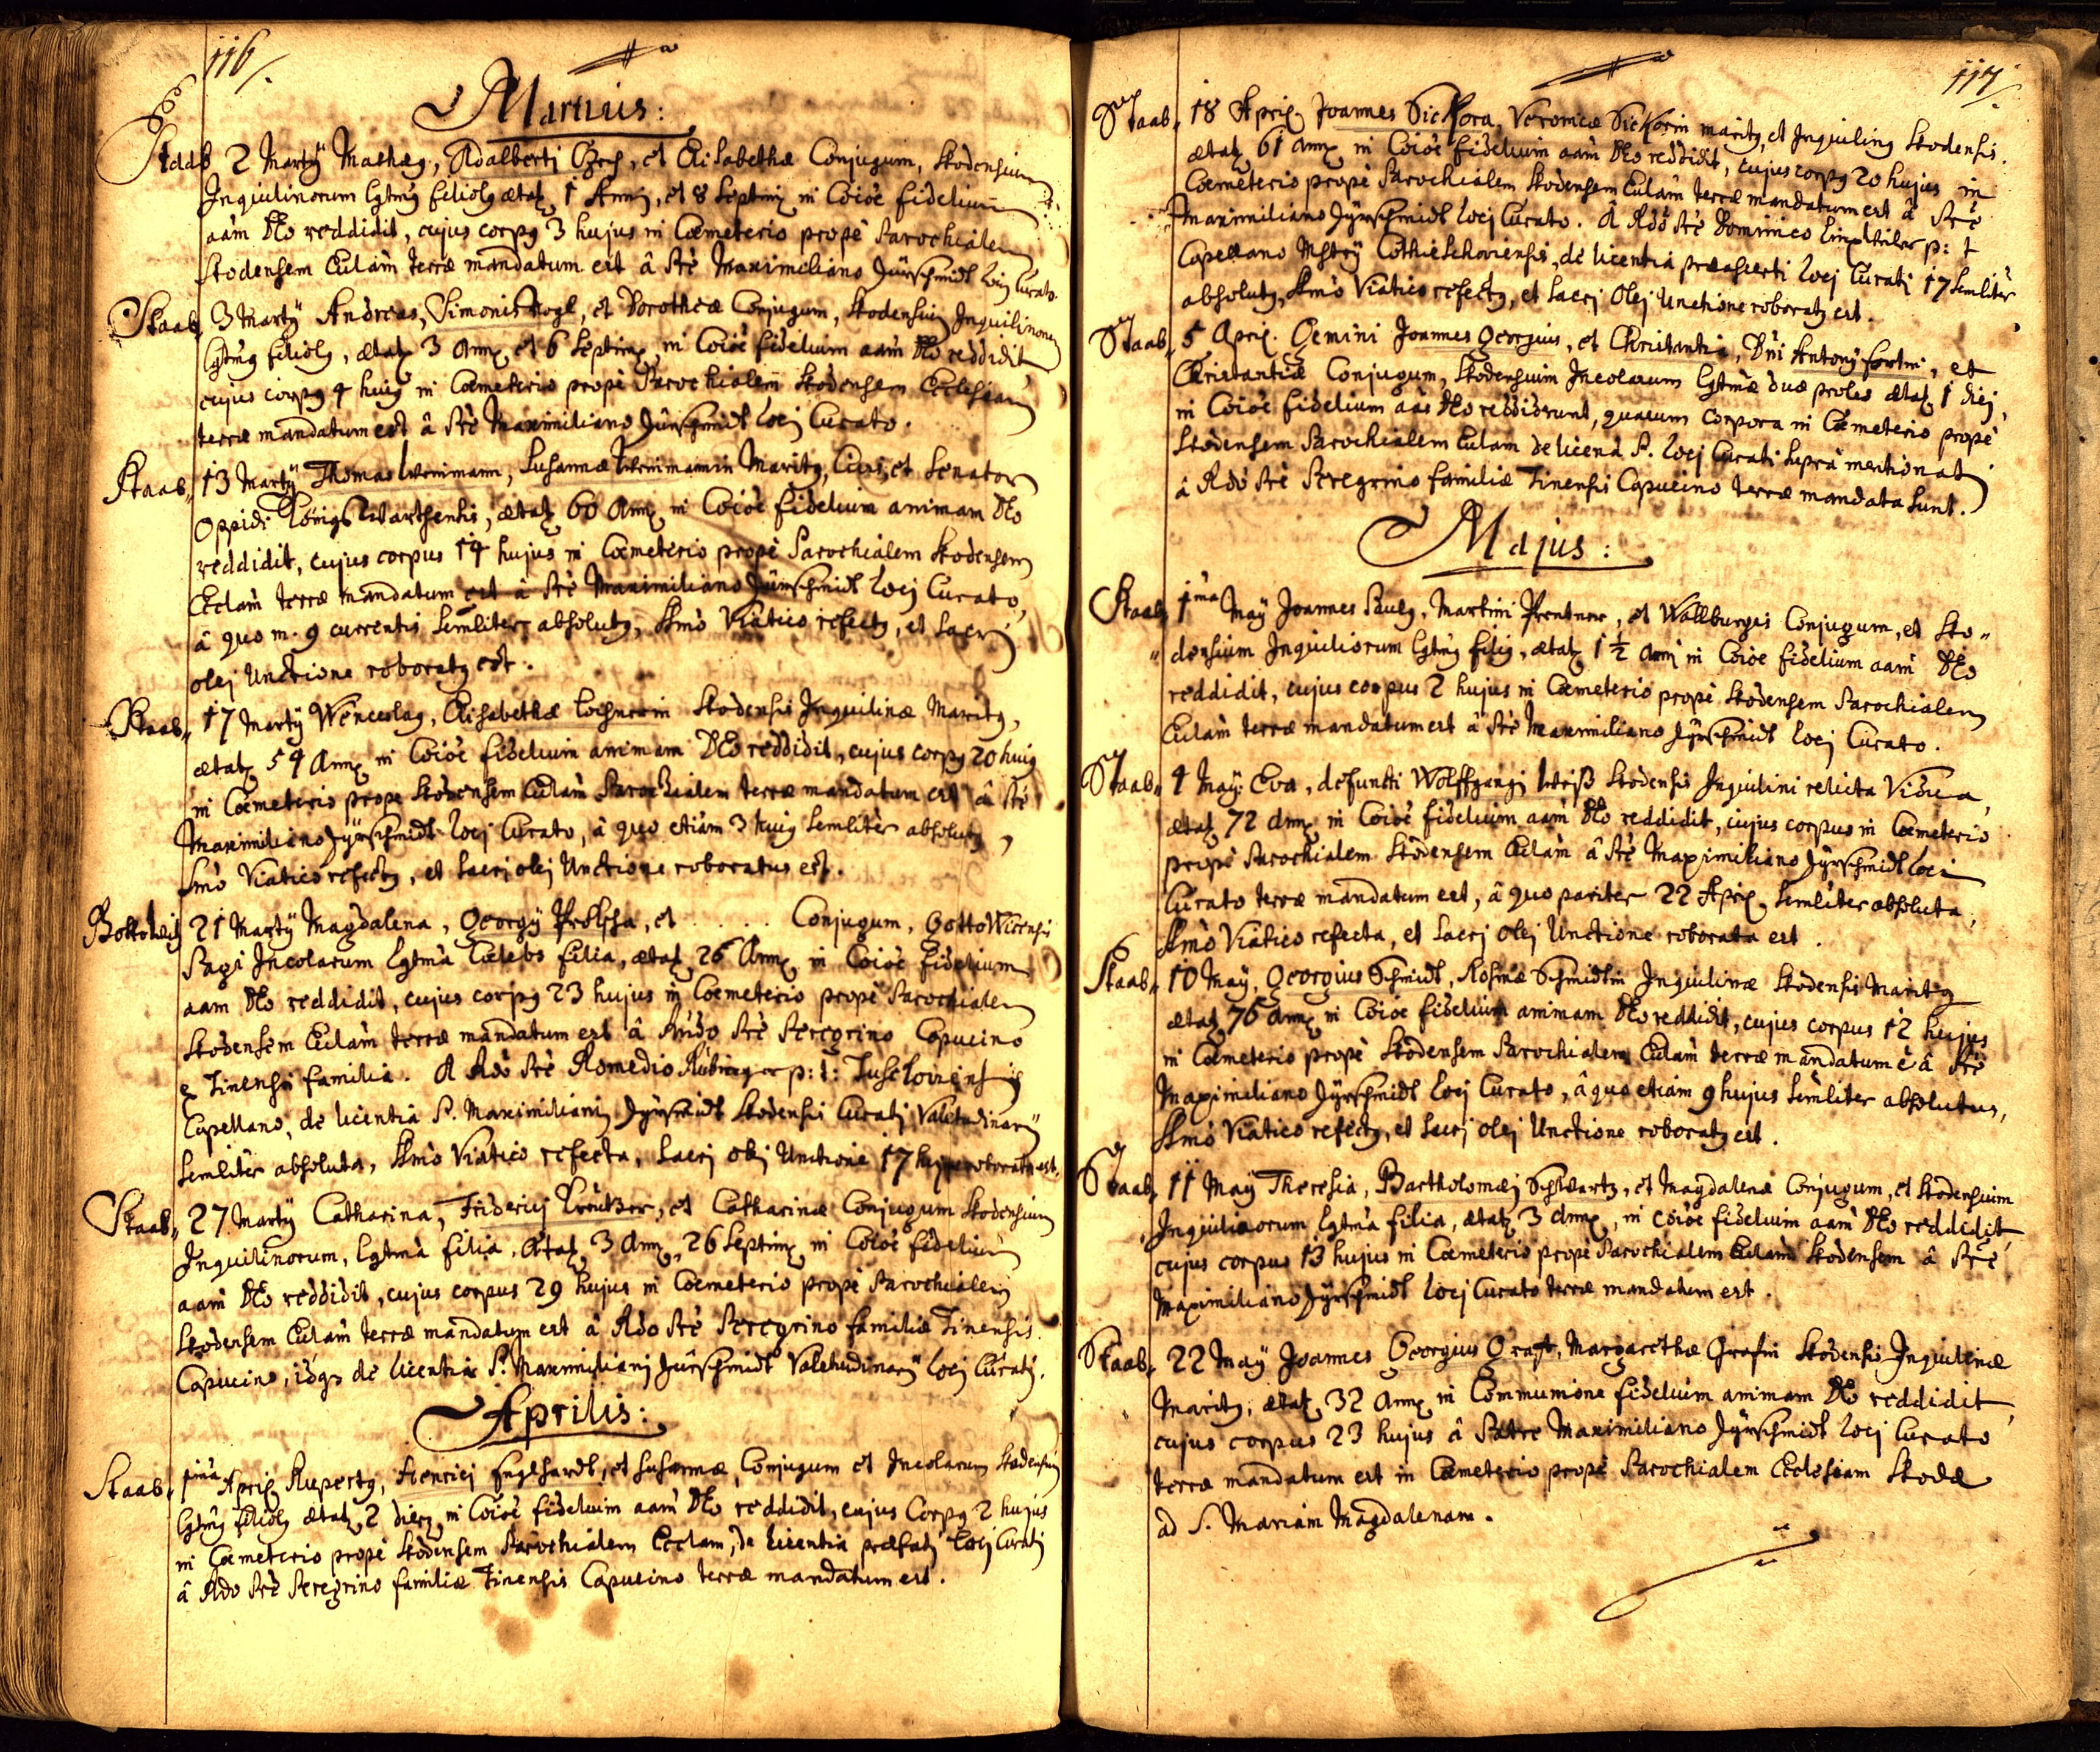 116
Martius:
Staab 2 Martÿ Mathæg, Adalberti, et Elisabethæ Conjugum, Stodensium
Inquilinorum Lgtmg filiolg ætatz 1 Anni, et 8 Septimz in Coiõe fidelium
aam Deo reddidit, cujus corpg 3 hujus in Cœmeterio propè Parochialem
Stodensem Eclam terræ mandatum est â Pre Maximiliano Jÿrschmidt Loci Curato.
Staab, 3 Martÿ Andreas, Simonis Vogl, et Dorotheæ Conjugum, Stodensium Inquilinorum
Lgtmg filiolg, ætatz 3 Annz et 6 Septimz in Coiõe fidelium aam Deo reddidit
cujus corpg 4 huig in Cœmeterio propè Parochialem Stodensem Ecclesiam
terræ mandatum est â Pre Maximiliano Jÿrschmidt Loci Curato.
Staab, 13 Martÿ Thomas Weinmann, Susannæ Weinmannin Maritg, Civis, et Senator
Oppidi Königswarthensis, ætatz 60 Annz in Coiõe fidelium animam Deo
reddidit, cujus corpus 14 hujus in Cœmeterio propè Parochialem Stodensem
Eclam terræ mandatum est â Pre Maximiliano Jÿrschmidt Loci Curato,
â quo m. 9 currentis Semliter absolutg, Smo Viatico refectg, et Sacri
olej Unctione roboratg est.
Staab, 17 Martÿ Wenceslag, Elisabethæ Lochnerin Stodensis Inquilinæ Maritg,
ætatz 54 Annz in Coiõe fidelium animam Deo reddidit, cujus corpg 20 huig
in Cœmeterio prope Stodensem Eclam Parochialem terræ mandatum est â Pre
Maximiliano Jÿrschmidt Loci Curato, â quo etiam 3 huig Semliter absolutg,
Smo Viatico refectg, et Sacri olej Unctione roboratus est.
21 Martÿ Magdalena, Georgÿ, et . . . . . Conjugum, Gottowicensis
Pagi Incolarum Lgtma Cœlebs filia, ætatz 26 Annz in Coiõe fidelium
aam Deo reddidit, cujus corpg 23 hujus in Cœmeterio propè Parochialem
Stodensem Eclam terræ mandatum est â Rndo Pre Peregrino Capucino
Tinensis familia. A Rdo Pre Romedio p: t:
Capellano, de licentia P. Maximiliani Jÿrschmidt Stodensis Curati Valetudinarÿ
Semliter absoluta, Smo Viatico refecta, Sacri olej Unctione 17 hujus roborata est.
Staab, 27 Martÿ Catharina, Friderici, et Catharinæ Conjugum Stodensium
Inquilinorum, Lgtma filia, ætatz 3 Annz, 26 Septimz in Coiõe fidelium
aam Deo reddidit, cujus corpus 29 hujus in Cœmeterio propè Parochialem
Stodensem Eclam terræ mandatum est â Rdo Pre Peregrino familiæ Tinensis
Capucino, idqz de licentia P. Maximiliani Jÿrschmidt Valetudinarÿ Loci Curati.
Aprilis:
Staab, 1ma Aprilz Rupertg, Henrici Englhardt, et Susannæ, Conjugum et Incolarum Stodensium
Lgtmg filiolg ætatz 2 dierz in Coiõe fidelium aam Deo reddidit, cujus Corpg 2 hujus
in Cœmeterio propè Stodensem Parochialem Eclam, de licentia præfati Loci Curati
â Rdo Pre Peregrino familiæ Tinensis Capucino terræ mandatum est.
117
Staab, 18 Aprilz Joannes Sickora, Veronicæ Sickorin maritg, et Inquiling Stodensis.
ætatz 61 Annz in Coiõe fidelium aam Deo reddidit, cujus corpg 20 hujus in
Cœmeterio propè Parochialem Stodensem Eclam terræ mandatum est â Pre
Maximiliano Jÿrschmidt Loci Curato. A Rdo Pre Dominico p: t
Capellano de licentia præinserti Loci Curati 17 Semliter
absolutg, Smo Viatico refectg, et Sacri Olej Unctione roboratg est.
Staab, 5 Aprilz. Gemini Joannes Georgius, et Christantia, Dni Antonÿ, et
Christantiæ Conjugum, Stodensium Incolarum Lgtmæ duæ proles ætatz 1 diej,
in Coiõe fidelium aas Deo reddiderunt, quarum corpora in Cœmeterio propè
Stodensem Parochialem Eclam de licentia P. Loci Curati supra mentionati
â Rdo Pre Peregrino familiæ Tinensis Capucino terræ mandata sunt.
Majus:
Staab, 1ma Maÿ Joannes Paulg, Martini Prentner, et Wallburgis Conjugum, et Sto=
densium Inquiliorum Lgtmg filig, ætatz 1 ½ Anni in Coiõe fidelium aam Deo
reddidit, cujus corpus 2 hujus in Cœmeterio propè Stodensem Parochialem
Eclam terræ mandatum est â Pre Maximiliano Jÿrschmidt Loci Curato.
Staab, 4 Maÿ. Eva, defuncti Wolffgangi Weiß Stodensis Inquilini relicta Vidua,
ætatz 72 Annz in Coiõe fidelium aam Deo reddidit, cujus corpus in Cœmeterio
propè Parochialem Stodensem Eclam â Pre Maximiliano Jÿrschmidt Loci
Curato terræ mandatum est, â quo pariter 22 Aprilz Semliter absoluta,
Smo Viatico refecta, et Sacri Olej Unctione roborata est.
Staab, 10 Maÿ, Georgius Schmidt, Rosinæ Schmidtin Inquilinæ Stodensis Maritg
ætatz 76 Annz in Coiõe fidelium animam Deo reddidit, cujus corpus 12 hujus
in Cœmeterio propè Stodensem Parochialem Eclam terræ mandatum ê â Pre
Maximiliano Jÿrschmidt Loci Curato, â quo etiam 9 hujus Semliter absolutus,
Smo Viatico refectg, et Sacri Olej Unctione roboratg est.
Staab, 11 Maÿ Theresia, Bartholomæi Schwartz, et Magdalenæ Conjugum, et Stodensium
Inquilinorum Lgtma filia, ætatz 3 Annz, in Coiõe fidelium aam Deo reddidit,
cujus corpus 13 hujus in Cœmeterio propè Parochialem Eclam Stodensem â Pre
Maximiliano Jÿrschmidt Loci Curato terræ mandatum est.
Staab, 22 Maÿ Joannes Georgius Graff, Margarethæ Grafin Stodensis Inquilinæ
Maritg, ætatz 32 Annz in Communione fidelium animam Deo reddidit,
cujus corpus 23 hujus â Patre Maximiliano Jÿrschmidt Loci Curato
terræ mandatum est in Cœmeterio propè Parochialem Ecclesiam Stodæ
ad S. Mariam Magdalenam.